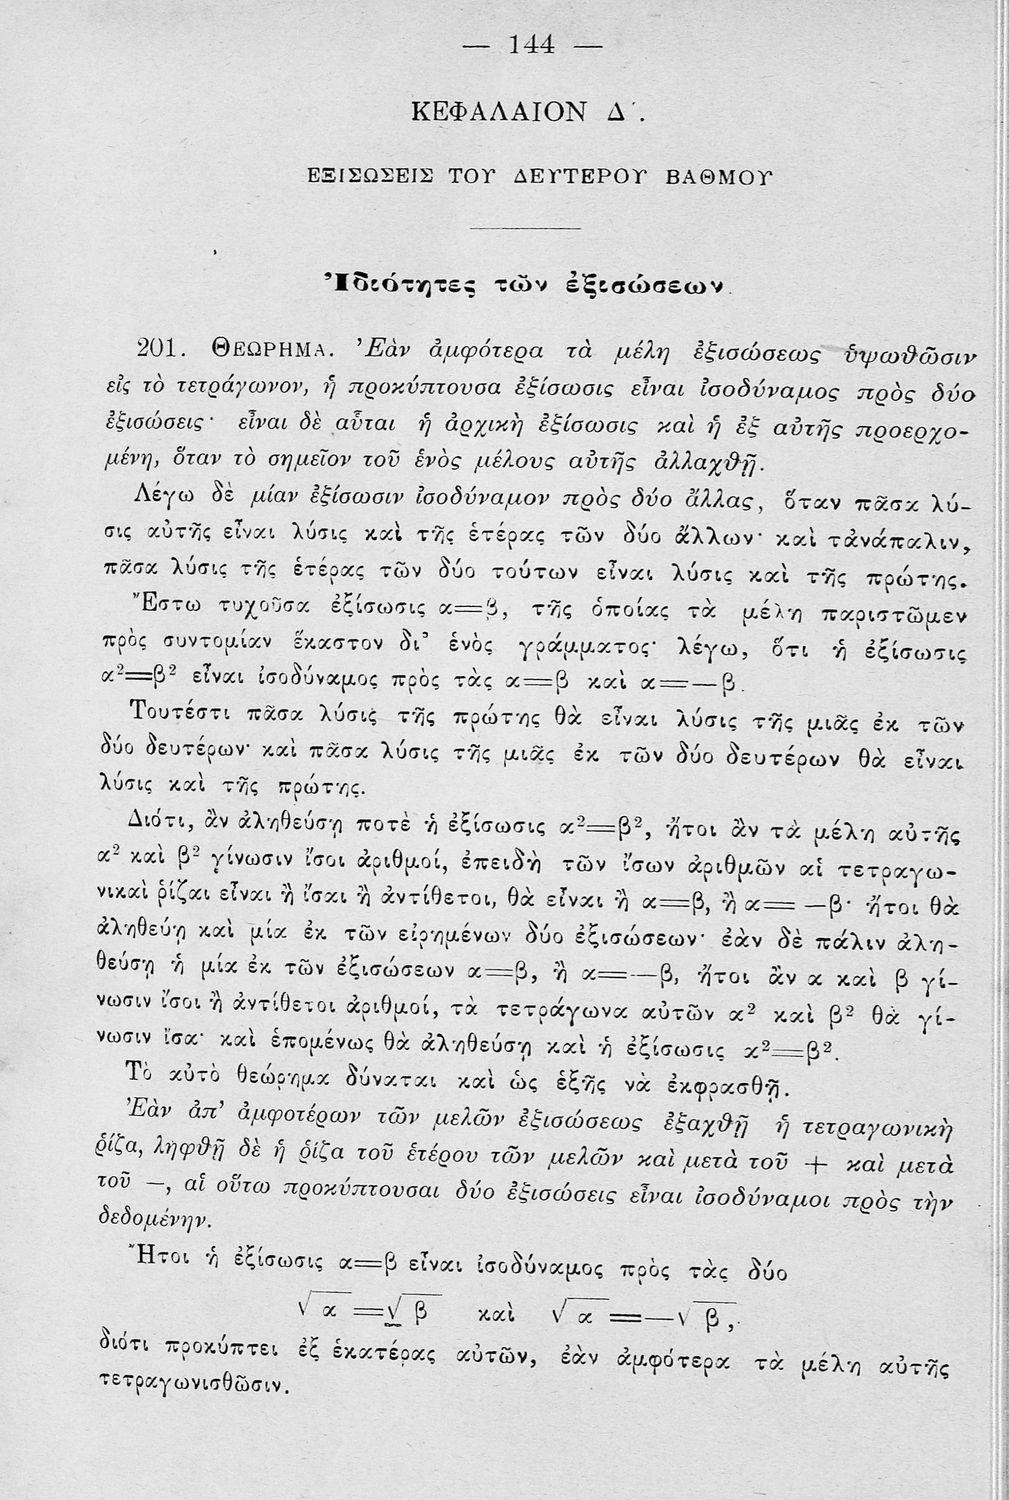 — 144 —
ΚΕΦΑΛΑΙΟΝ Δ΄.
ΕΞΙΣΩΣΕΙΣ ΤΟΥ ΔΕΥΤΕΡΟΥ ΒΑΘΜΟΥ
Ἰδιότητες τῶν ἐξισώσεων.
201. ΘΕΩΡΗΜΑ. Ἐὰν ἀμφότερα τὰ μέλη ἐξισώσεως ὑψωθῶσιν
εἰς τὸ τετράγωνον, ἡ προκύπτουσα ἐξίσωσις εἶναι ἰσοδύναμος πρὸς δύο
ἐξισώσεις· εἶναι δὲ αὗται ἡ ἀρχικὴ ἐξίσωσις καὶ ἡ ἐξ αὐτῆς προερχο-
μένη, ὅταν τὸ σημεῖον τοῦ ἑνὸς μέλους αὐτῆς ἀλλαχθῇ.
Λέγω δὲ μίαν ἐξίσωσιν ἰσοδύναμον πρὸς δύο ἄλλας, ὅταν πᾶσα λύ-
σις αὐτῆς εἶναι λύσις καὶ τῆς ἑτέρας τῶν δύο ἄλλων· καὶ τἀνάπαλιν,
πᾶσα λύσις τῆς ἑτέρας τῶν δύο τούτων εἶναι λύσις καὶ τῆς πρώτης.
Ἔστω τυχοῦσα ἐξίσωσις α=β, τῆς ὁποίας τὰ μέλη παριστῶμεν
πρὸς συντομίαν ἕκαστον δι' ἑνὸς γράμματος· λέγω, ὅτι ἡ ἐξίσωσις
α²=β² εἶναι ἰσοδύναμος πρὸς τὰς α=β καὶ α=—β.
Τουτέστι πᾶσα λύσις τῆς πρώτης θὰ εἶναι λύσις τῆς μιᾶς ἐκ τῶν
δύο δευτέρων· καὶ πᾶσα λύσις τῆς μιᾶς ἐκ τῶν δύο δευτέρων θὰ εἶναι
λύσις καὶ τῆς πρώτης.
Διότι, ἂν ἀληθεύσῃ ποτὲ ἡ ἐξίσωσις α²=β², ἤτοι ἂν τὰ μέλη αὐτῆς
α² καὶ β² γίνωσιν ἴσοι ἀριθμοί, ἐπειδὴ τῶν ἴσων ἀριθμῶν αἱ τετραγω-
νικαὶ ῥίζαι εἶναι ἢ ἴσαι ἢ ἀντίθετοι, θὰ εἶναι ἢ α=β, ἢ α= —β· ἤτοι θὰ
ἀληθεύῃ καὶ μία ἐκ τῶν εἰρημένων δύο ἐξισώσεων· ἐὰν δὲ πάλιν ἀλη-
θεύσῃ ἡ μία ἐκ τῶν ἐξισώσεων α=β, ἢ α=—β, ἤτοι ἂν α καὶ β γί-
νωσιν ἴσοι ἢ ἀντίθετοι ἀριθμοί, τὰ τετράγωνα αὐτῶν α² καὶ β² θὰ γί-
νωσιν ἴσα· καὶ ἑπομένως θὰ ἀληθεύσῃ καὶ ἡ ἐξίσωσις α²=β².
Τὸ αὐτὸ θεώρημα δύναται καὶ ὡς ἑξῆς νὰ ἐκφρασθῇ.
Ἐὰν ἀπ' ἀμφοτέρων τῶν μελῶν ἐξισώσεως ἐξαχθῇ ἡ τετραγωνικὴ
ῥίζα, ληφθῇ δὲ ἡ ῥίζα τοῦ ἑτέρου τῶν μελῶν καὶ μετὰ τοῦ + καὶ μετὰ
τοῦ —, αἱ οὕτω προκύπτουσαι δύο ἐξισώσεις εἶναι ἰσοδύναμοι πρὸς τὴν
δεδομένην.
Ἤτοι ἡ ἐξίσωσις α=β εἶναι ἰσοδύναμος πρὸς τὰς δύο
√α =√β καὶ √α =—√β,
διότι προκύπτει ἐξ ἑκατέρας αὐτῶν, ἐὰν ἀμφότερα τὰ μέλη αὐτῆς
τετραγωνισθῶσιν.